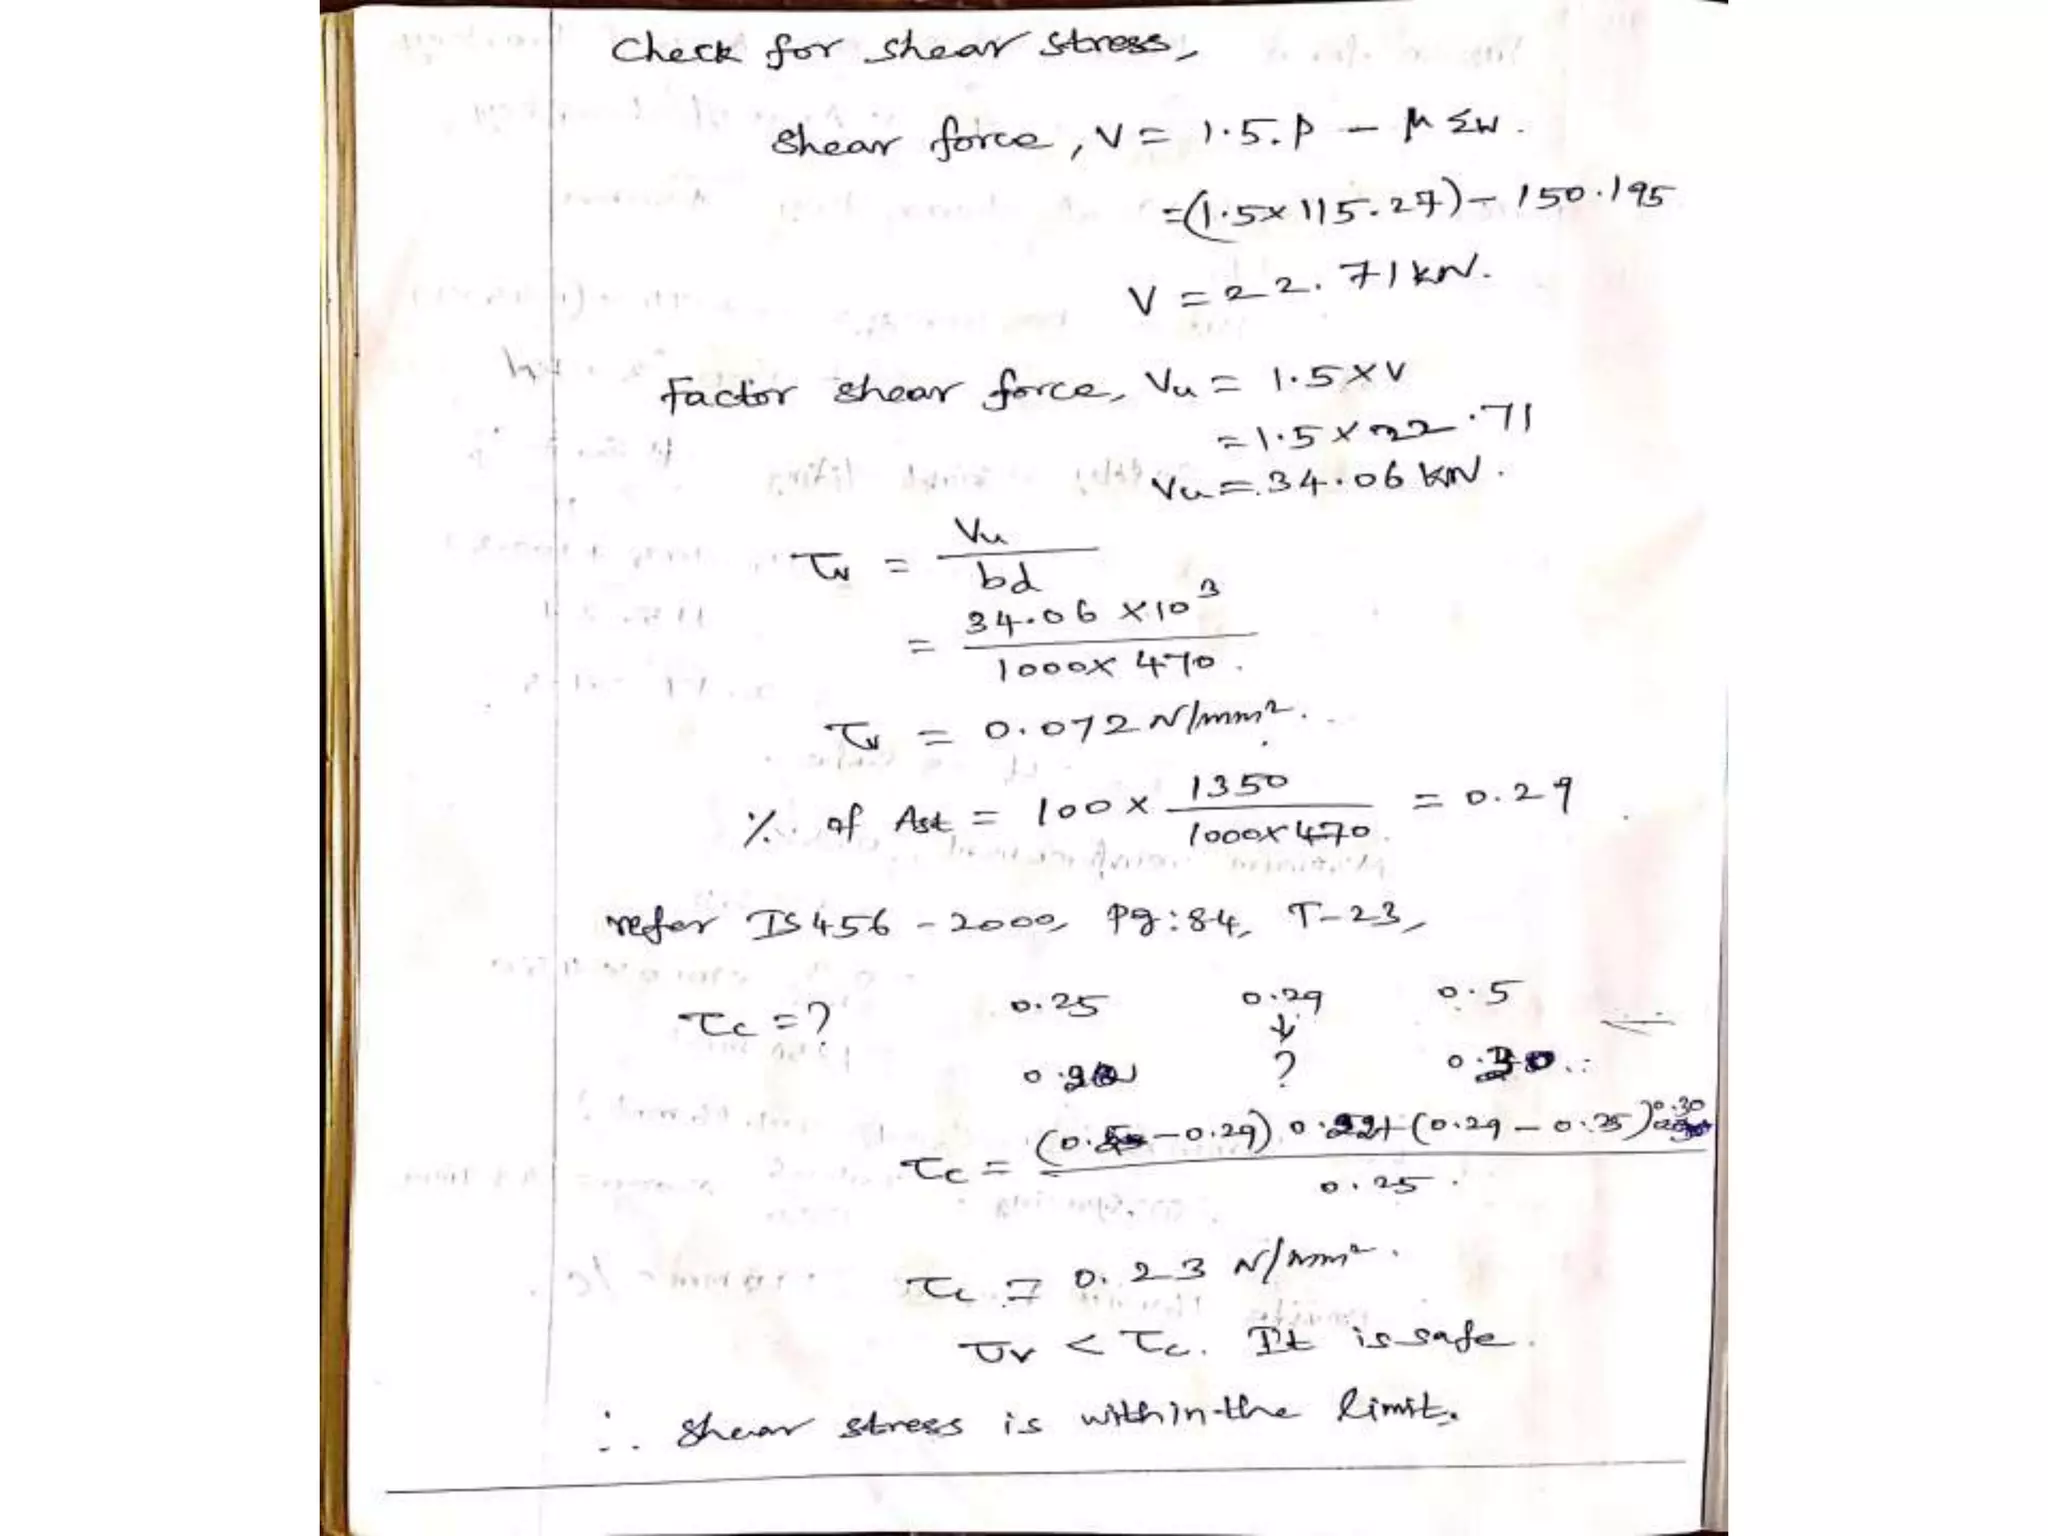 Check for shear stress,
Shear force, V = 1.5.P - μ ΣW.
=(1.5×115.27) - 150.195
V = 22.71 kN.
Factor shear force, Vu = 1.5×V
= 1.5×22.71
Vu = 34.06 kN.
τv = Vu / bd
= 34.06 ×10³ / 1000×470.
τv = 0.072 N/mm².
% of Ast = 100 × 1350 / 1000×470 = 0.29
refer IS 456 - 2000, Pg:84, T-23,
τc = ? 0.25 0.29 0.5
↓
? 0.30
τc = (0.5 - 0.29) 0.22 + (0.29 - 0.25) 0.30 / 0.25.
τc = 0.23 N/mm².
τv < τc. It is safe.
∴ Shear stress is within the limit.